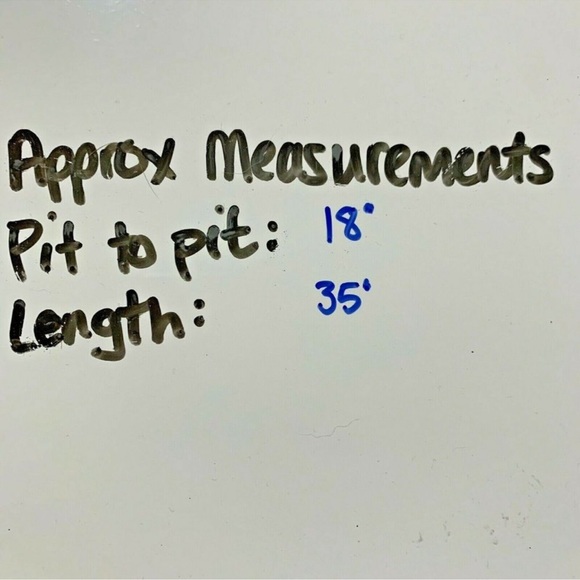 Approx Measurements
Pit to pit: 18"
Length: 35"